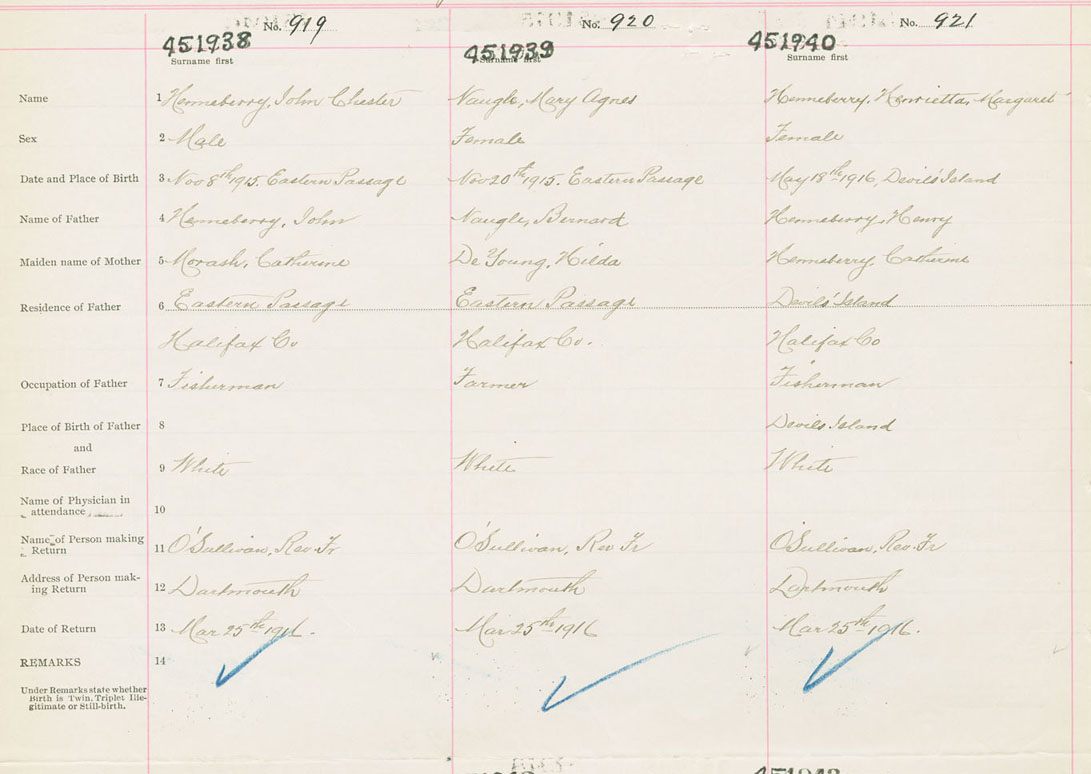 No. 919 No. 920 No. 921
451938 451939 451940
Surname first Surname first Surname first
Name 1 Henneberry, John Chester Naugle, Mary Agnes Henneberry, Henrietta, Margaret
Sex 2 Male Female Female
Date and Place of Birth 3 Nov 8th 1915. Eastern Passage Nov 20th 1915. Eastern Passage May 18th 1916, Devils Island
Name of Father 4 Henneberry, John Naugle, Bernard Henneberry, Henry
Maiden name of Mother 5 Morash, Catherine De Young, Hilda Henneberry, Catherine
Residence of Father 6 Eastern Passage Eastern Passage Devils' Island
Halifax Co Halifax Co. Halifax Co
Occupation of Father 7 Fisherman Farmer Fisherman
Place of Birth of Father 8 Devils Island
and
Race of Father 9 White White White
Name of Physician in
attendance 10
Name of Person making
Return 11 O'Sullivan, Rev. Fr O'Sullivan, Rev Fr O'Sullivan, Rev. Fr
Address of Person mak-
ing Return 12 Dartmouth Dartmouth Dartmouth
Date of Return 13 Mar 25th 1916. Mar 25th 1916 Mar 25th 1916.
REMARKS 14
Under Remarks state whether
Birth is Twin, Triplet, Ille-
gitimate or Still-birth.